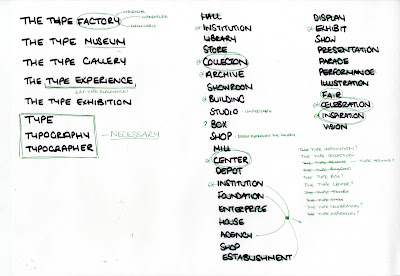 THE TYPE FACTORY
THE TYPE MUSEUM
THE TYPE GALLERY
THE TYPE EXPERIENCE
THE TYPE EXHIBITION
TYPE
TYPOGRAPHY
TYPOGRAPHER
— NECESSARY
HALL
INSTITUTION
LIBRARY
STORE
COLLECTION
ARCHIVE
SHOWROOM
BUILDING
STUDIO
? BOX
SHOP
MILL
CENTER
DEPOT
INSTITUTION
FOUNDATION
ENTERPRIZE
HOUSE
AGENCY
SHOP
ESTABLISHMENT
DISPLAY
EXHIBIT
SHOW
PRESENTATION
PARADE
PERFORMANCE
ILLUSTRATION
FAIR
CELEBRATION
INSPIRATION
VISION
THE TYPE INSTITUTION?
THE TYPE COLLECTION
THE TYPE BOX?
THE TYPE CENTER?
THE TYPE CELEBRATION?
THE TYPE INSPIRATION?